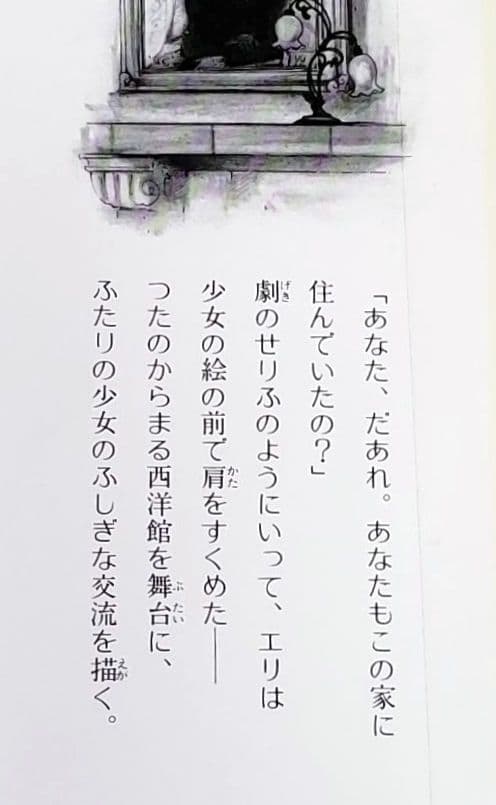 「あなた、だあれ。あなたもこの家に
住んでいたの？」
劇のせりふのようにいって、エリは
少女の絵の前で肩をすくめた——
つたのからまる西洋館を舞台に、
ふたりの少女のふしぎな交流を描く。